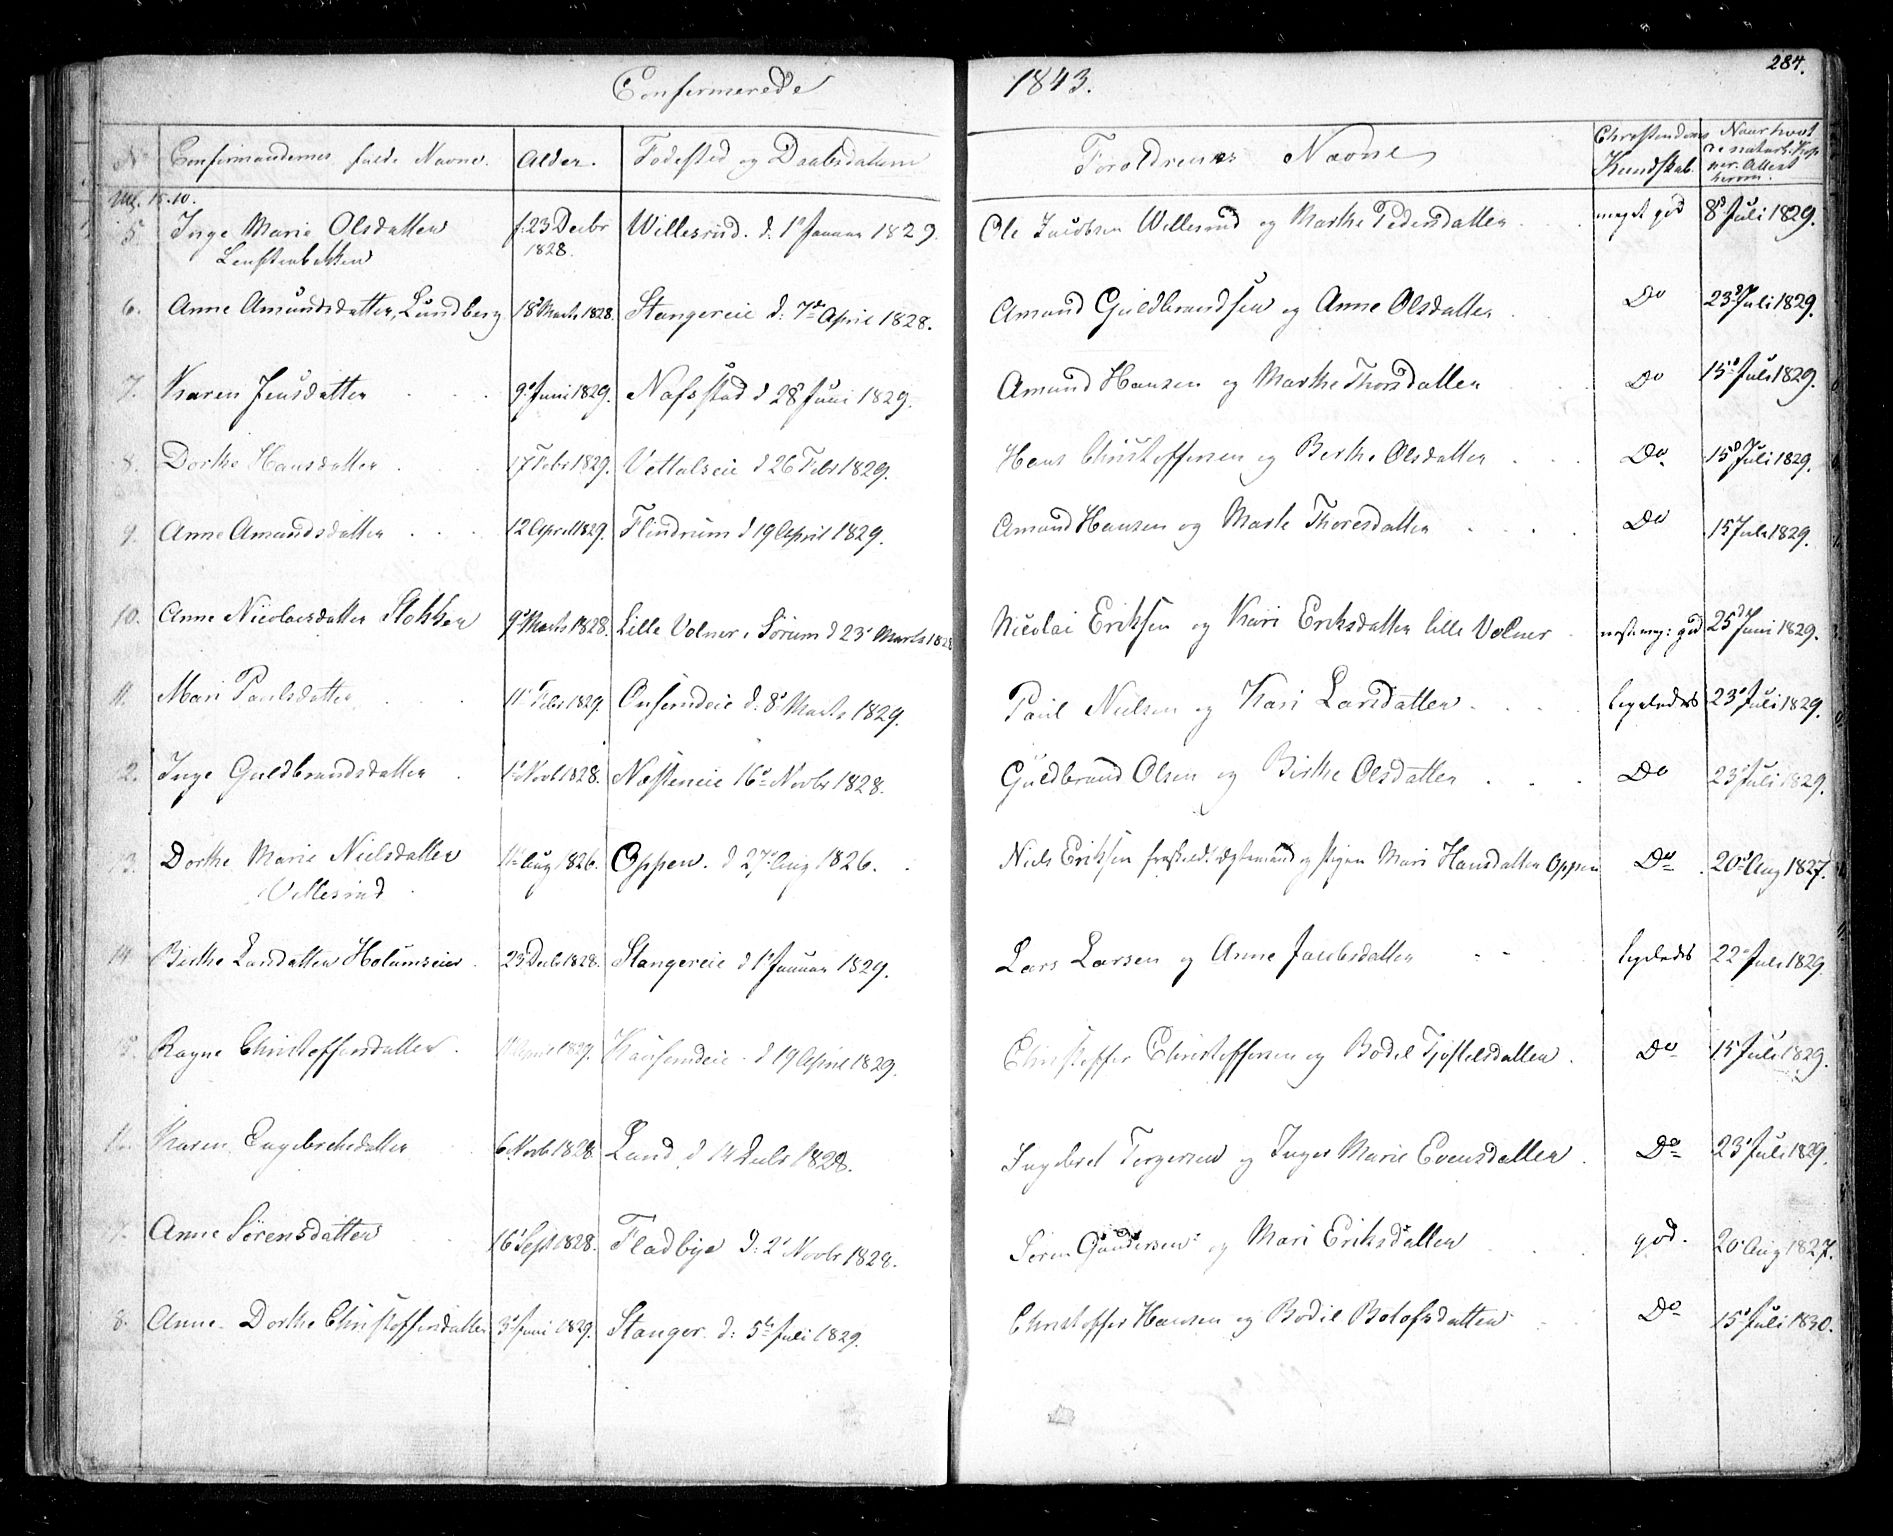 Confirmerede 1843. 284.
No Confirmandernes fulde Navne. Alder. Fødested og Daabsdatum Forældrenes Navne Christendoms Kundskab. Naar havt de naturl. Kop per. Attest herom.
5. Inge Marie Olsdatter f. 23 Decbr Willesrud. d. 1e Januar 1829. Ole Jacobsen Willesrud og Marthe Pedersdatter meget god 8de Juli 1829.
1828.
6. Anne Amundsdatter, Lundberg 18e Marts 1828. Stangereie d: 7de April 1828. Amund Guldbrandsen og Anne Olsdatter Do 23de Juli 1829.
7. Karen Jensdatter 9e Juni 1829. Nafstad d 28 Juni 1829. Amund Hansen og Marthe Thorsdatter Do 15de Juli 1829.
8. Dorthe Hansdatter 17 Febr 1829. Vettalseie d 26 Febr 1829. Hans Christoffersen og Berthe Olsdatter Do. 15de Juli 1829.
9. Anne Amundsdatter 12 April 1829. Flindrum d 19 April 1829. Amund Hansen og Marte Thoresdatter Do 15 Juli 1829.
10. Anne Nicolaisdatter Stokker 9e Marts 1828. Lille Volner, Sørum d 23e Marts 1828 Nicolai Eriksen og Kari Eriksdatter lille Volner næsten meg: god 25de Juni 1829.
11. Mari Paulsdatter 11e Febr 1829. d. 8e Marts 1829. Paul Nielsen og Kari Larsdatter ligeledes 23e Juli 1829.
2. Inge Guldbrandsdatter 1e Novbr 1828. Næsteneie 16e Novbr 1828. Guldbrand Olsen og Birthe Olsdatter Do 23e Juli 1829.
13. Dorthe Marie Nielsdatter 11e Aug 1826. Oppen. d 27e Aug 1826. Niels Eriksen fraskildt ægtemand og pigen Mari Hansdatter Oppen Do 20de Aug 1827.
Villesrud
14 Birthe Larsdatter Holumseie 23 Decbr 1828. Stangereie d 1e Januar 1829. Lars Larsen og Anne Jacobsdatter ligeledes 22e Juli 1829.
5. Ragne Christoffersdatter April 1829. d 19 April 1829. Christoffer Christoffersen og Bodel Tjostelsdatter Do 15 Juli 1829.
Karen Engebretsdatter 6 Novbr 1828 Land d 14 Decbr 1828. Ingebret Torgersen og Inger Marie Evensdatter Do 23e Juli 1829.
7. Anne Sørensdatter 16e Sept 1828. Fladbye d: 2e Novbr 1828. Søren Gundersen og Mari Eriksdatter god. 20e Aug 1827.
8. Anne Dorthe Christoffersdatter 3e Juni 1829. Stanger d: 5te Juli 1829. Christoffer Hansen og Bodil Bolofsdatter Do 15e Juli 1830.